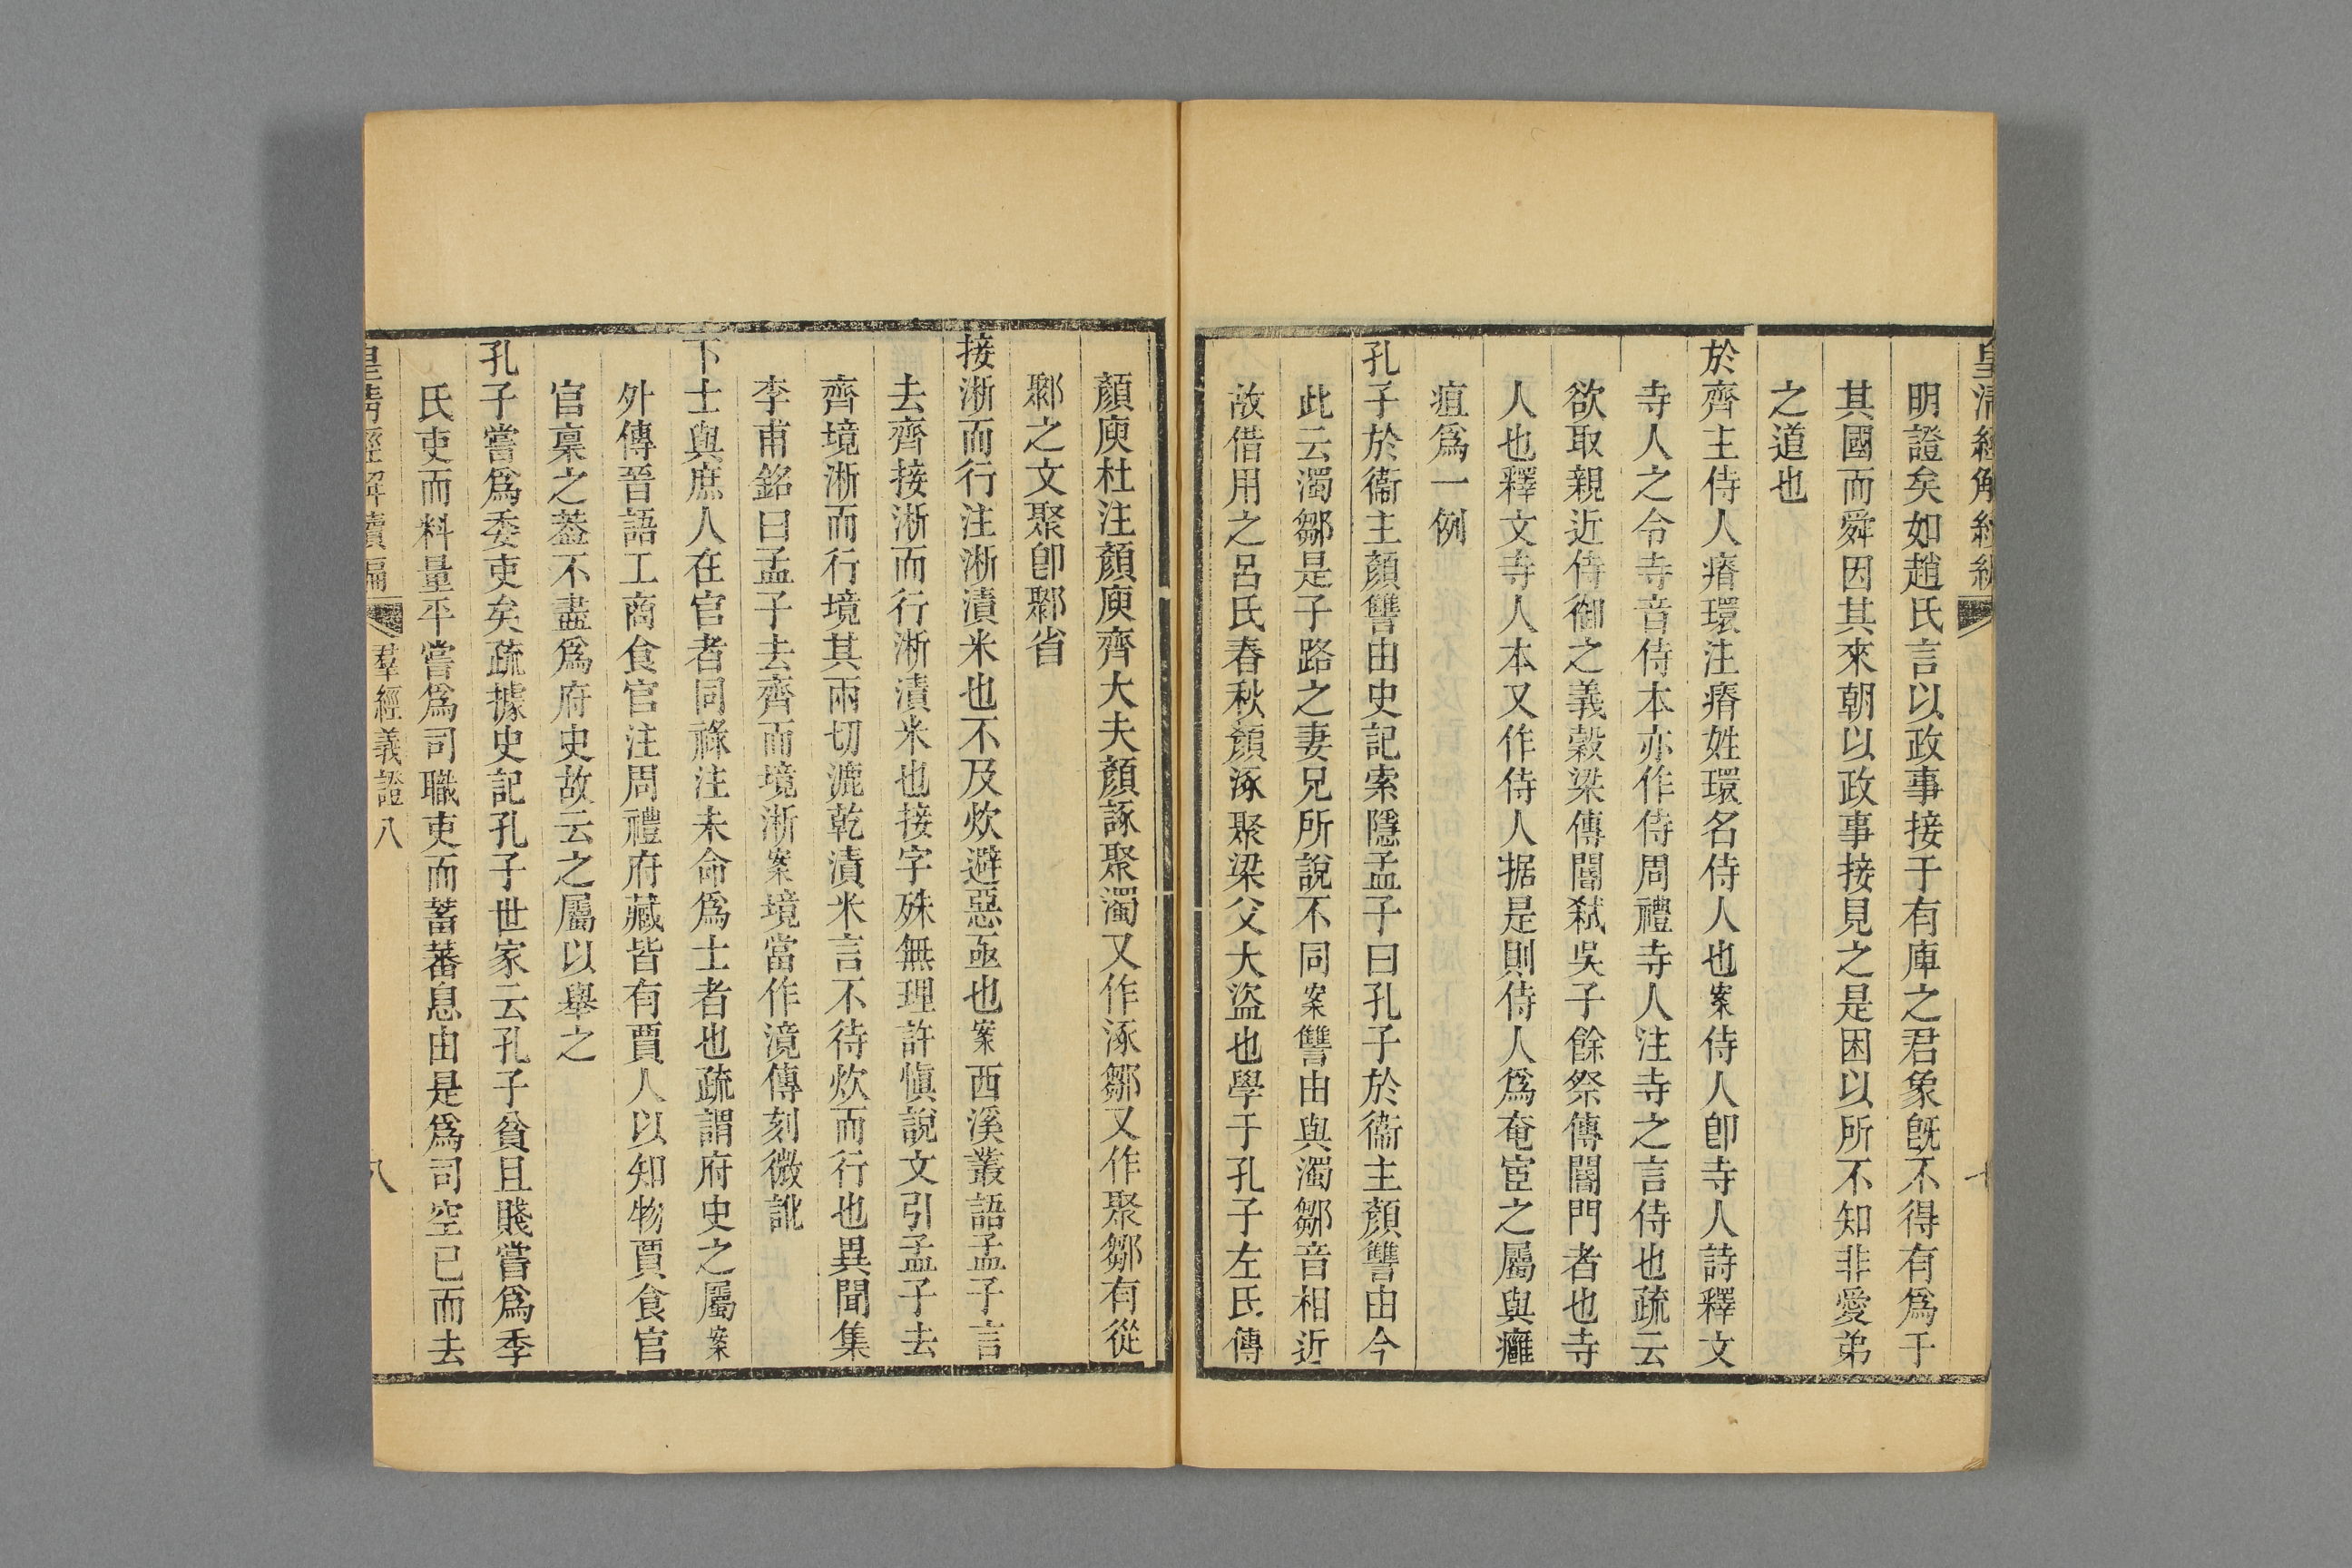 皇清經解續編
明證矣如趙氏言以政事接于有庳之君象旣不得有爲于
其國而舜因其來朝以政事接見之是困以所不知非愛弟
之道也
於齊主侍人瘠環注瘠姓環名侍人也案侍人卽寺人詩釋文
寺人之令寺音侍本亦作侍周禮寺人注寺之言侍也疏云
欲取親近侍御之義穀梁傳閽弒吳子餘祭傳閽門者也寺
人也釋文寺人本又作侍人据是則侍人爲奄宦之屬與癰
疽爲一例
孔子於衞主顏讐由史記索隱孟子曰孔子於衞主顏讐由今
此云濁鄒是子路之妻兄所說不同案讐由與濁鄒音相近
故借用之呂氏春秋顏涿聚梁父大盜也學于孔子左氏傳
顏庾杜注顏庾齊大夫顏諑聚濁又作涿鄒又作聚鄒有從
鄹之文聚卽鄹省
接淅而行注淅漬米也不及炊避惡亟也案西溪叢語孟子言
去齊接淅而行淅漬米也接字殊無理許愼說文引孟子去
齊境淅而行境其兩切漉乾漬米言不待炊而行也異聞集
李甫銘曰孟子去齊而境淅案境當作滰傳刻微訛
下士與庶人在官者同祿注未命爲士者也疏謂府史之屬案
外傳晉語工商食官注周禮府藏皆有賈人以知物賈食官
官稟之葢不盡爲府史故云之屬以舉之
孔子嘗爲委吏矣疏據史記孔子世家云孔子貧且賤嘗爲季
氏吏而料量平嘗爲司職吏而蓄蕃息由是爲司空已而去
皇清經解續編 羣經義證八 八